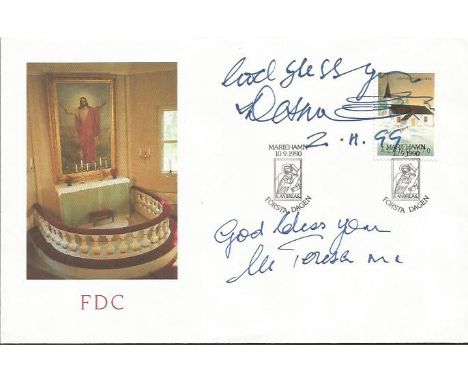 God bless you
2.11.99
MARIEHAMN
10.9.1990
S. ANDREAS
FÖRSTA DAGEN
MARIEHAMN
10.9.1990
S. ANDREAS
FÖRSTA DAGEN
God bless you
M Teresa mc
FDC